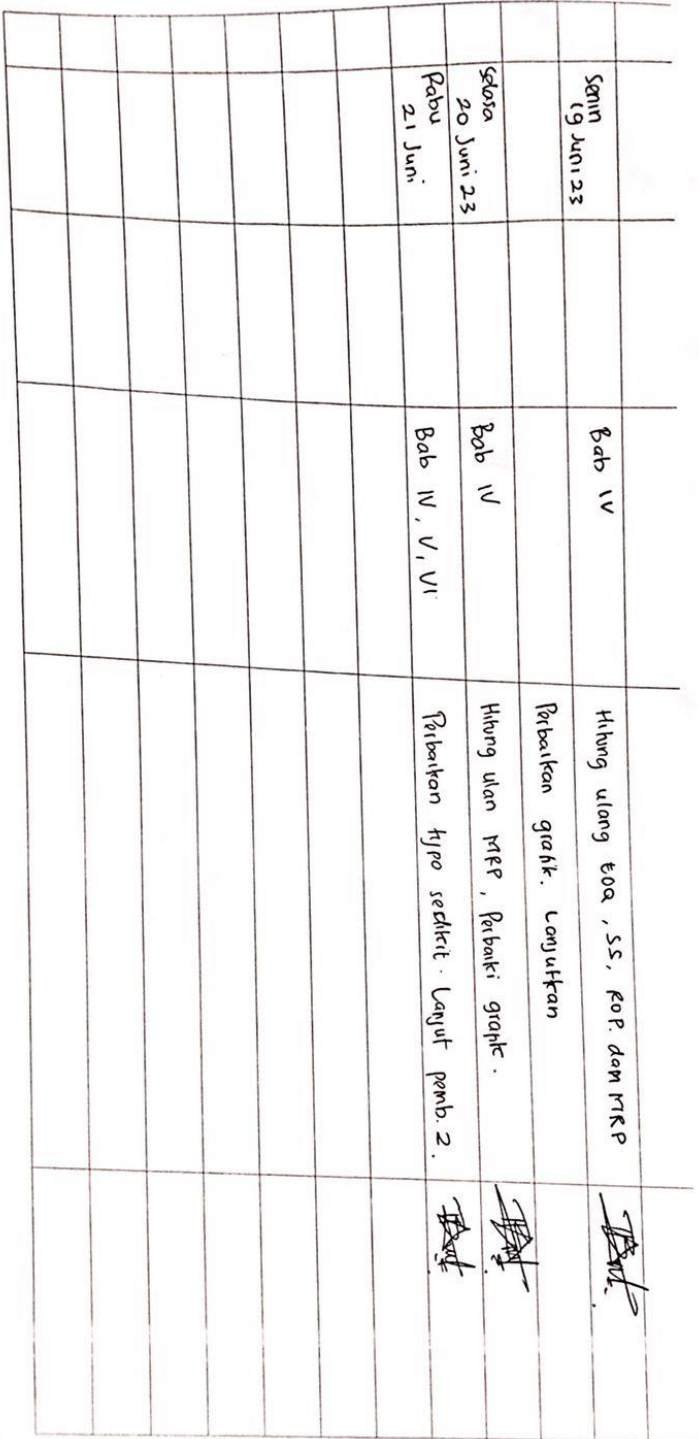 Senin
19 Juni 23
Bab IV
Hitung ulang EOQ, SS, ROP. dam MRP
Perbaikan grafik. Lanjutkan
Selasa
20 Juni 23
Bab IV
Hitung ulan MRP, Perbaiki grapik.
Rabu
21 Juni
Bab IV, V, VI
Perbaikan typo sedikit. Lanjut pemb. 2.